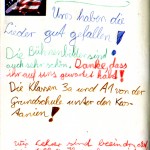 Uns haben die
Lieder gut gefallen!
Die Bühnenbilder sind
auch sehr schön. Danke, dass
ihr auf uns gewartet habt!
Die Klassen 3a und A1 von der
Grundschule unter den Kas-
tanien!
wir